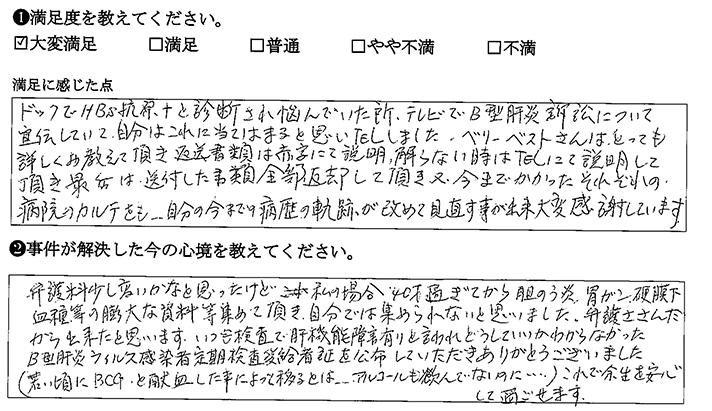 ❶満足度を教えてください。
☑大変満足 □満足 □普通 □やや不満 □不満
満足に感じた点
ドックでHBs抗原+と診断され悩んでいた所、テレビでB型肝炎訴訟について
宣伝していて、自分はこれに当てはまると思いTELしました。ベリーベストさんは、とっても
詳しくお教えて頂き返送書類は赤字にて説明、解らない時はTELにて説明して
頂き最后は、送付した書類全部返却して頂き又、今までかかったそれぞれの
病院のカルテをも…自分の今までの病歴の軌跡が改めて見直す事が出来大変感謝しています
❷事件が解決した今の心境を教えてください。
弁護料少し高いかなと思ったけど 私の場合、40才過ぎてから胆のう炎、胃がン、硬膜下
血種等の膨大な資料等集めて頂き、自分では集められないと思いました、弁護士さんだ
から出来たと思います。いつも検査で肝機能障害有りと言われどうしていいかわからなかった
B型肝炎ウィルス感染者定期検査受給者証を公布していただきありがとうございました
(若い頃にBCGと献血した事によって移るとは…アルコールも飲んでないのに・・・・)これで余生を安心
して過ごせます。